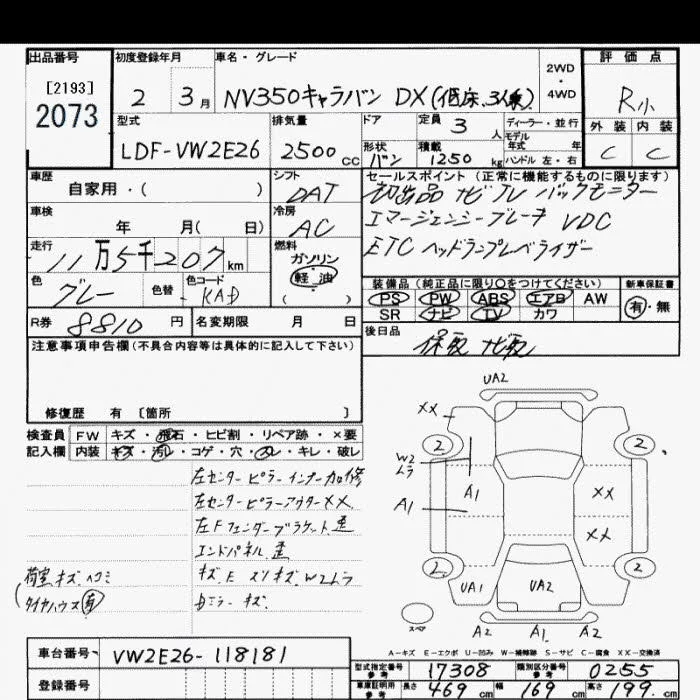 出品番号
[2193]
2073
初度登録年月
2 3月
車名・グレード
NV350キャラバン DX(低床,3人乗)
2WD
・
4WD
評価点
R小
外装 内装
C C
型式
LDF-VW2E26
排気量
2500cc
ドア
形状
バン
定員 3人
積載 1250kg
ディーラー・並行
モデル
年式 年
ハンドル 左・右
車歴
自家用・( )
シフト
DAT
車検
年 月( 日)
冷房
AC
走行
11万5千207km
燃料
ガソリン
・
軽・油
( )
色
グレー
色替
色コード
KAD
セールスポイント (正常に機能するものに限ります)
初出品 ナビTV バックモニター
エマージェンシーブレーキ VDC
ETC ヘッドランプレベライザー
装備品(純正品に限り○をつけてください)
PS PW ABS エアB AW
SR ナビ TV カワ
新車保証書
有・無
R券 8810円
名変期限 月 日
後日品
保取 ナビ取
注意事項申告欄(不具合内容等は具体的に記入して下さい)
修復歴 有 〔箇所 〕
検査員
記入欄
FW キズ・飛石・ヒビ割・リペア跡・×要
内装 キズ・汚レ・コゲ・穴・スレ・キレ・破レ
左センターピラーインナー加修
左センターピラーアウターXX
左Fフェンダーブラケット歪
エンドパネル歪
キズ E スリキズ W2ムラ
荷室キズ ヘコミ
タイヤハウス有
ミラーキズ
UA2
XX
2 2
W2
ムラ
A1
A1
XX
XX
2 2
UA1 UA2
スペア
A2 A1 A2
A-キズ E-エクボ U-凹み W-補修跡 S-サビ C-腐食 XX-交換済
車台番号 VW2E26-118181
登録番号
型式指定番号
参考
17308
類別区分番号
参考
0255
車庫証明用
参考
長さ 469cm 幅 169cm 高さ 199cm